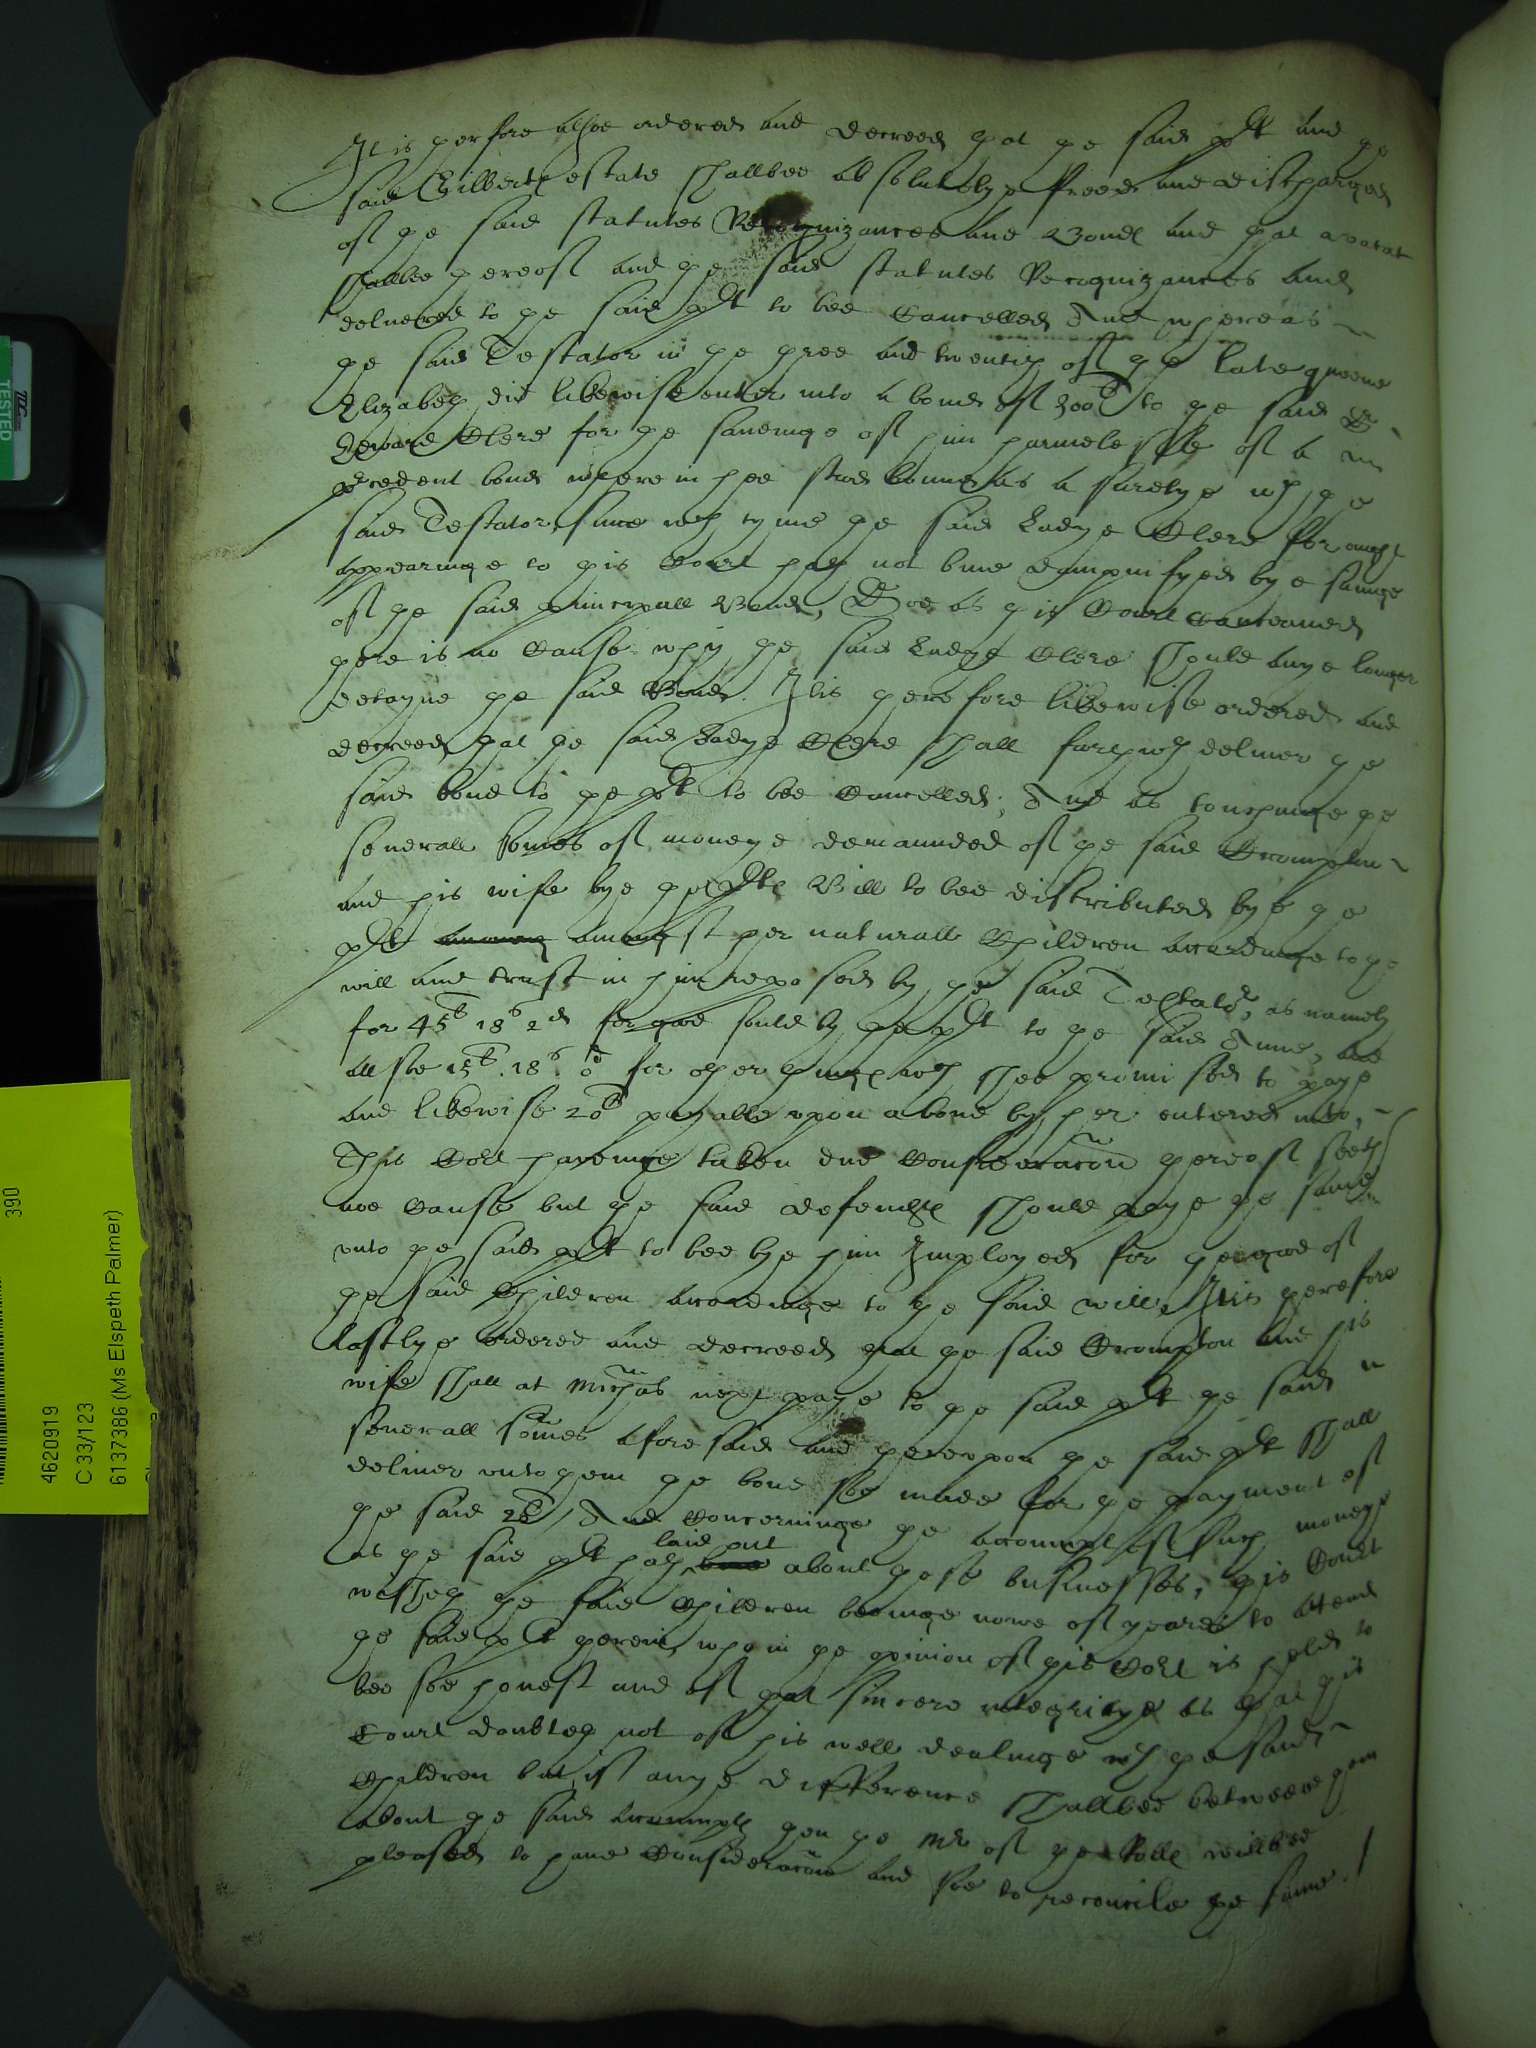 It is therfore alsoe ordered and decreed that the said plt and the
said Gilberts estate shallbee absolutelye freed and discharged
of the said statutes Recognizances and Bonds and that a vacat
shallbee thereof and the said statutes Recognizances and
delivered to the said plt to bee Cancelled And whereas
the said Testator in the three and twentith of the late queene
Elizabeth did likewise enter into a bond of 300li to the said Sr
Edward Clere for the saveinge of him harmelesse of a
precedent bond wherein hee stood bound as a suretye wth the
said Testator, since wch tyme the said Ladye Clere for ought
appearinge to this Court hath not bine dampnifyed bye
of the said principall Bond, Soe as this Court Conceaved
there is no Cause why the said Ladye Clere should anye longer
detayne the said Bond. It is therefore likewise ordered and
decreed that the said Ladye Clere shall forthwth deliver the
said bond to the plt to bee Cancelled; And as touchinge the
severall somes of moneye demaunded of the said Crompton
and his wife bye the plts Bill to bee distributed bye the
plt amongst her naturall Children accordinge to the
will and trust in him reposed by the said Testator, as namely
for 45li 18s 2d for good sould by the plt to the said Anne, and
allsoe 15li. 18s. 0d for other things wch shee promised to paye
and likewise 20li payable upon a bond by her entered into,
This Cort haveinge taken due Consideracon thereof seeth
noe Cause but the said defendts should paye the same
unto the said plt to bee bye him Imployed for the good of
the said Children accordinge to the said will, It is therefore
lastlye ordered and decreed that the said Crompton and his
wife shall at Michas next paye to the said plt the said
severall somes aforesaid and thereupon the said plt shall
deliver unto them the bond soe made for the payment of
the said 20li, And Concerninge the accompt of such moneye
laid out
as the said plt hath about these businesses, this Court
wisheth the said Children beeinge nowe of yeares to attend
the said plt therein, who in the opinion of this Cort is held to
bee soe honest and of that sincere integritye as that this
Court doubteth not of his well dealinge wth the said
Children but if anye difference shallbee betweene them
about the said accompts then the Mr of the Rolls willbee
pleased to have Consideracon and soe to reconcile the same./
390
4620919
C 33/123
6137386 (Ms Elspeth Palmer)
TESTED